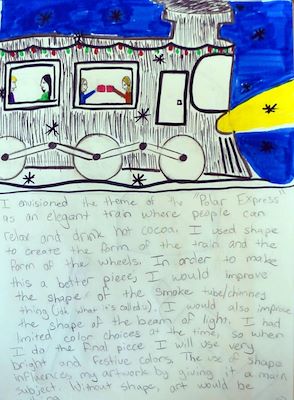 I envisioned the theme of the "Polar Express"
as an elegant train where people can
relax and drink hot cocoa. I used shape
to create the form of the train and the
form of the wheels. In order to make
this a better piece, I would improve
the shape of the smoke tube/chimney
thing (idk what it's called:(). I would also improve
the shape of the beam of light. I had
limited color choices at the time, so when
I do the final piece I will use very
bright and festive colors. The use of shape
influences my artwork by giving it a main
subject. Without shape, art would be